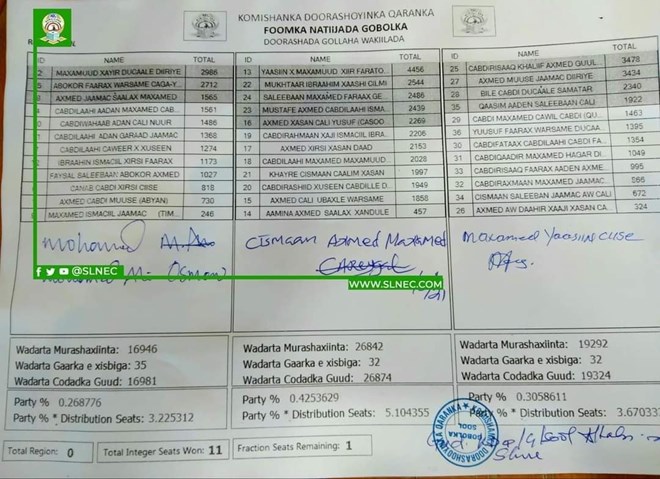 KOMISHANKA DOORASHOYINKA QARANKA
FOOMKA NATIIJADA GOBOLKA
DOORASHADA GOLLAHA WAKIILADA
ID NAME TOTAL
2 MAXAMUUD XAYIR DUCAALE DIIRIYE 2986
ABOKOR FAARAX WARSAME CAGA-Y 2712
AXMED JAAMAC SAALAX MAXAMED 1565
CABDILAAHI AADAN MAXAMED CAB 1561
CABDIWAHAAB ADAN CALI NUUR 1486
CABDILAAHI ADAN GARAAD JAAMAC 1368
CABDILAAHI CAWEER X XUSEEN 1274
IBRAAHIN ISMACIIL XIRSI FAARAX 1173
FAYSAL SALEEBAAN ABOKOR AXMED 1027
CANAB CABDI XIRSI CIISE 818
AXMED CABDI MUUSE (ABYAN) 730
MAXAMED ISMACIIL JAAMAC (TIM 246
ID NAME TOTAL
13 YAASIN X MAXAMUUD XIIR FARATO 4456
22 MUKHTAAR IBRAAHIM XAASHI GILMI 2544
24 SALEEBAAN MAXAMED FARAAX GE 2486
23 MUSTAFE AXMED CABDILAAHI ISM 2439
16 AXMED XASAN CALI YUSUF (CASOO 2269
19 CABDIRAHMAAN XAJI ISMACIIL IBRA 2206
17 AXMED XIRSI XASAN DAAD 2153
18 CABDILAAHI MAXAMED MAXAMUUD 2028
21 KHAYRE CISMAAN CAALIM XASAN 1997
20 CABDIRASHIID XUSEEN CABDILLE D 1949
15 AXMED CALI UBAXLE WARSAME 1858
14 AAMINA AXMED SAALAX XANDULE 457
ID NAME TOTAL
25 CABDIRISAAQ KHALIIF AXMED GUUL 3478
27 AXMED MUUSE JAAMAC DIIRIYE 3434
28 BILE CABDI DUCAALE SAMATAR 2340
35 QAASIM AADEN SALEEBAAN CALI 1922
29 MAXAMED CAWIL CABDI (QU 1463
36 YUUSUF FAARAX WARSAME DUCAA 1395
30 CABDIFATAXX CABDILAAHI CABDI FA 1354
31 CABDIQAADIR MAXAMED HAGAR DI 1049
33 CABDIRISAAQ FAARAX AADEN AXME 995
32 CABDIRAXMAAN MAXAMED JAAMAC 566
34 CISMAAN SALEEBAN JAAMAC AW CALI 672
26 AXMED AW DAAHIR XAAJI XASAN CA 324
mohamed
CISMAAN AXMED MAXAMED
Maxamed Yaasiin CIISE
@SLNEC
Mohamed Ali Osman
WWW.SLNEC.COM
Wadarta Murashaxiinta: 16946
Wadarta Gaarka e xisbiga: 35
Wadarta Codadka Guud: 16981
Wadarta Murashaxiinta: 26842
Wadarta Gaarka e xisbiga: 32
Wadarta Codadka Guud: 26874
Wadarta Murashaxiinta: 19292
Wadarta Gaarka e xisbiga: 32
Wadarta Codadka Guud: 19324
Party % 0.268776
Party % * Distribution Seats: 3.225312
Party % 0.4253629
Party % * Distribution Seats: 5.104355
Party % 0.3058611
Party % * Distribution Seats: 3.67033
DOORASHOOYINKA QARANKA
GOBOLKA SOOL
Total Region: 0
Total Integer Seats Won: 11
Fraction Seats Remaining: 1